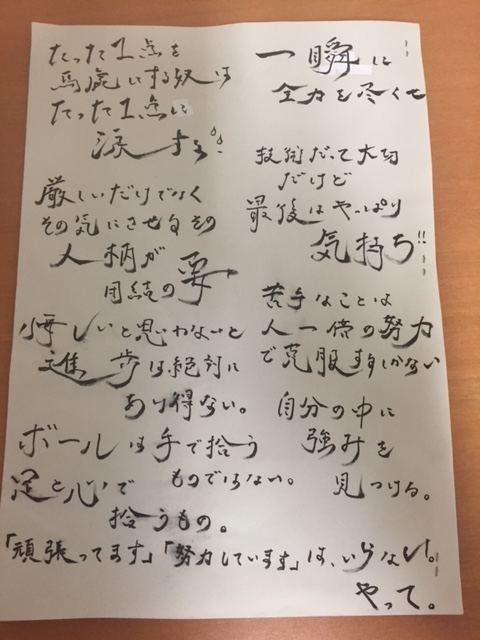 たった1点を
馬鹿にする奴は
たった1点に
涙する!!
一瞬に
全力を尽くせ
技術だって大切
だけど
最後はやっぱり
気持ち!!
厳しいだけでなく
その気にさせるその
人柄が
団結の要
苦手なことは
人一倍の努力
で克服するしかない
悔しいと思わないと
進歩は絶対に
あり得ない。
自分の中に
強みを
見つける。
ボールは手で拾う
ものではない。
足と心で
拾うもの。
「頑張ってます」「努力しています」は、いらない。
やって。